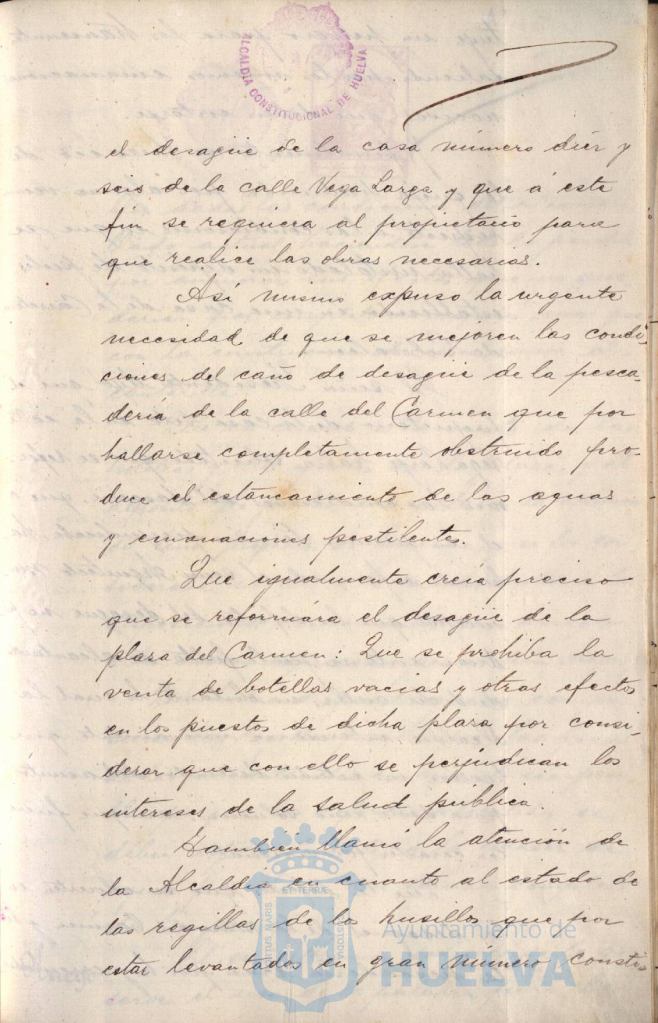 ALCALDÍA CONSTITUCIONAL DE HUELVA
el desagüe de la casa número diéz y
seis de la calle Vega Larga y que á este
fin se requiera al propietario para
que realice las obras necesarias.
Así mismo expuso la urgente
necesidad de que se mejoren las condi-
ciones del caño de desagüe de la pesca-
dería de la calle del Carmen que por
hallarse completamente obstruido pro-
duce el estancamiento de las aguas
y emanaciones pestilentes.
Que igualmente creía preciso
que se reformára el desagüe de la
plaza del Carmen: Que se prohiba la
venta de botellas vacias y otros efectos
en los puestos de dicha plaza por consi-
derar que con ello se perjudican los
intereses de la salud pública.
También llamó la atención de
la Alcaldía en cuanto al estado de
las regillas de los husillos que por
estar levantados en gran número consti-
Ayuntamiento de
HUELVA